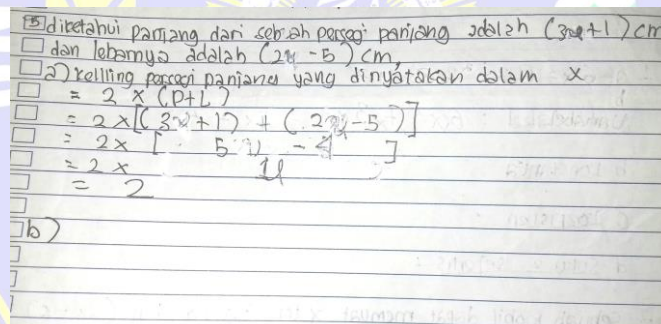 5 diketahui panjang dari sebuah persegi panjang adalah (3x+1) cm
dan lebarnya adalah (2x-5) cm,
a) kelling persegi panjang yang dinyatakan dalam x
= 2 x (P+L)
= 2 x [(3x+1) + (2x-5)]
= 2x [ 5 - 4 ]
= 2 x
= 2
b)